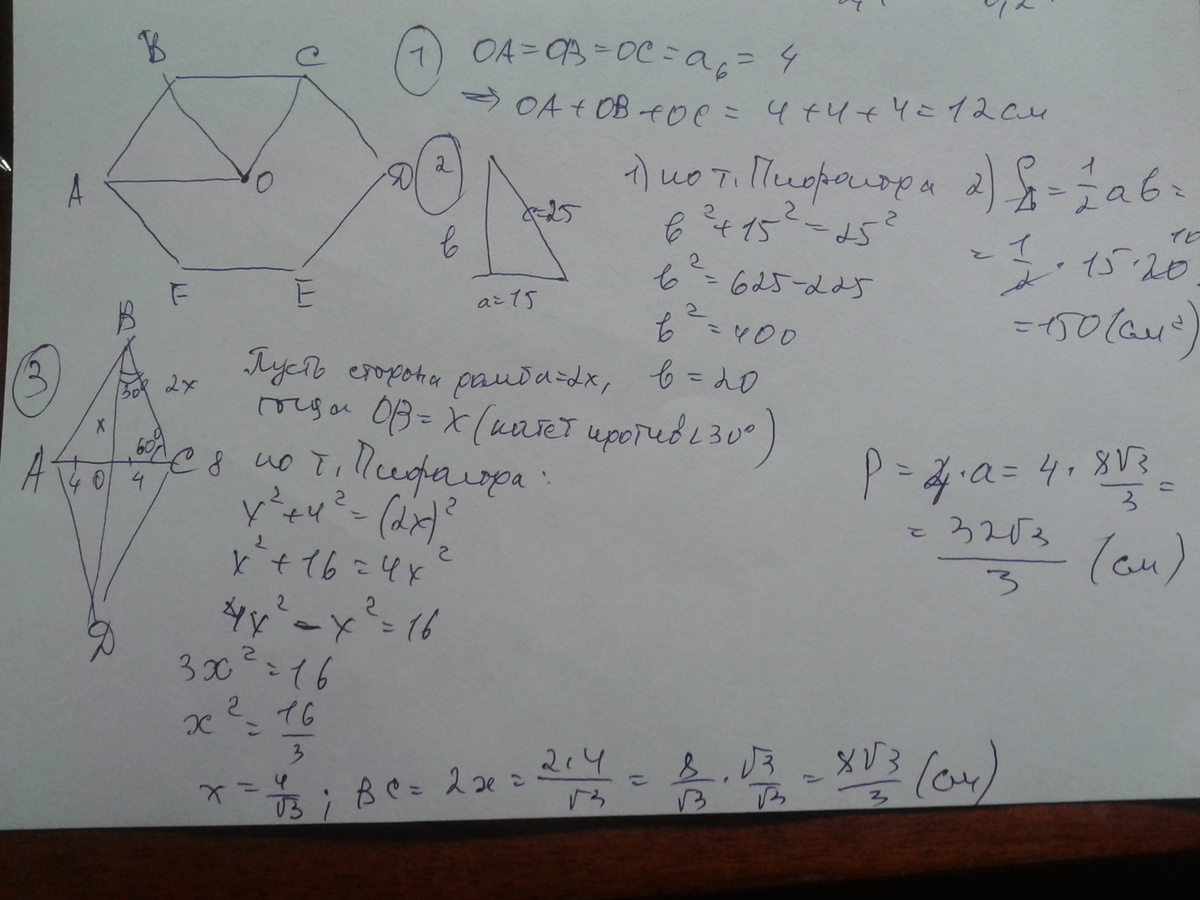 B C
A O D
F E
① OA = OB = OC = a₆ = 4
⇒ OA + OB + OC = 4 + 4 + 4 = 12 см
②
в
c=25
a=15
1) по т. Пифагора
в² + 15² = 25²
в² = 625 - 225
в² = 400
в = 20
2) S△ = 1/2 a в =
= 1/2 · 15 · 20 10
= 150 (см²)
③
B
30° 2x
x
60°
A 4 O 4 C 8
D
Пусть сторона ромба = 2x,
тогда OB = x (катет против < 30°)
по т. Пифагора:
x² + 4² = (2x)²
x² + 16 = 4x²
4x² - x² = 16
3x² = 16
x² = 16/3
x = 4/√3 ; BC = 2x = 2·4/√3 = 8/√3 · √3/√3 = 8√3/3 (см)
P = 4 · a = 4 · 8√3/3 =
= 32√3/3 (см)